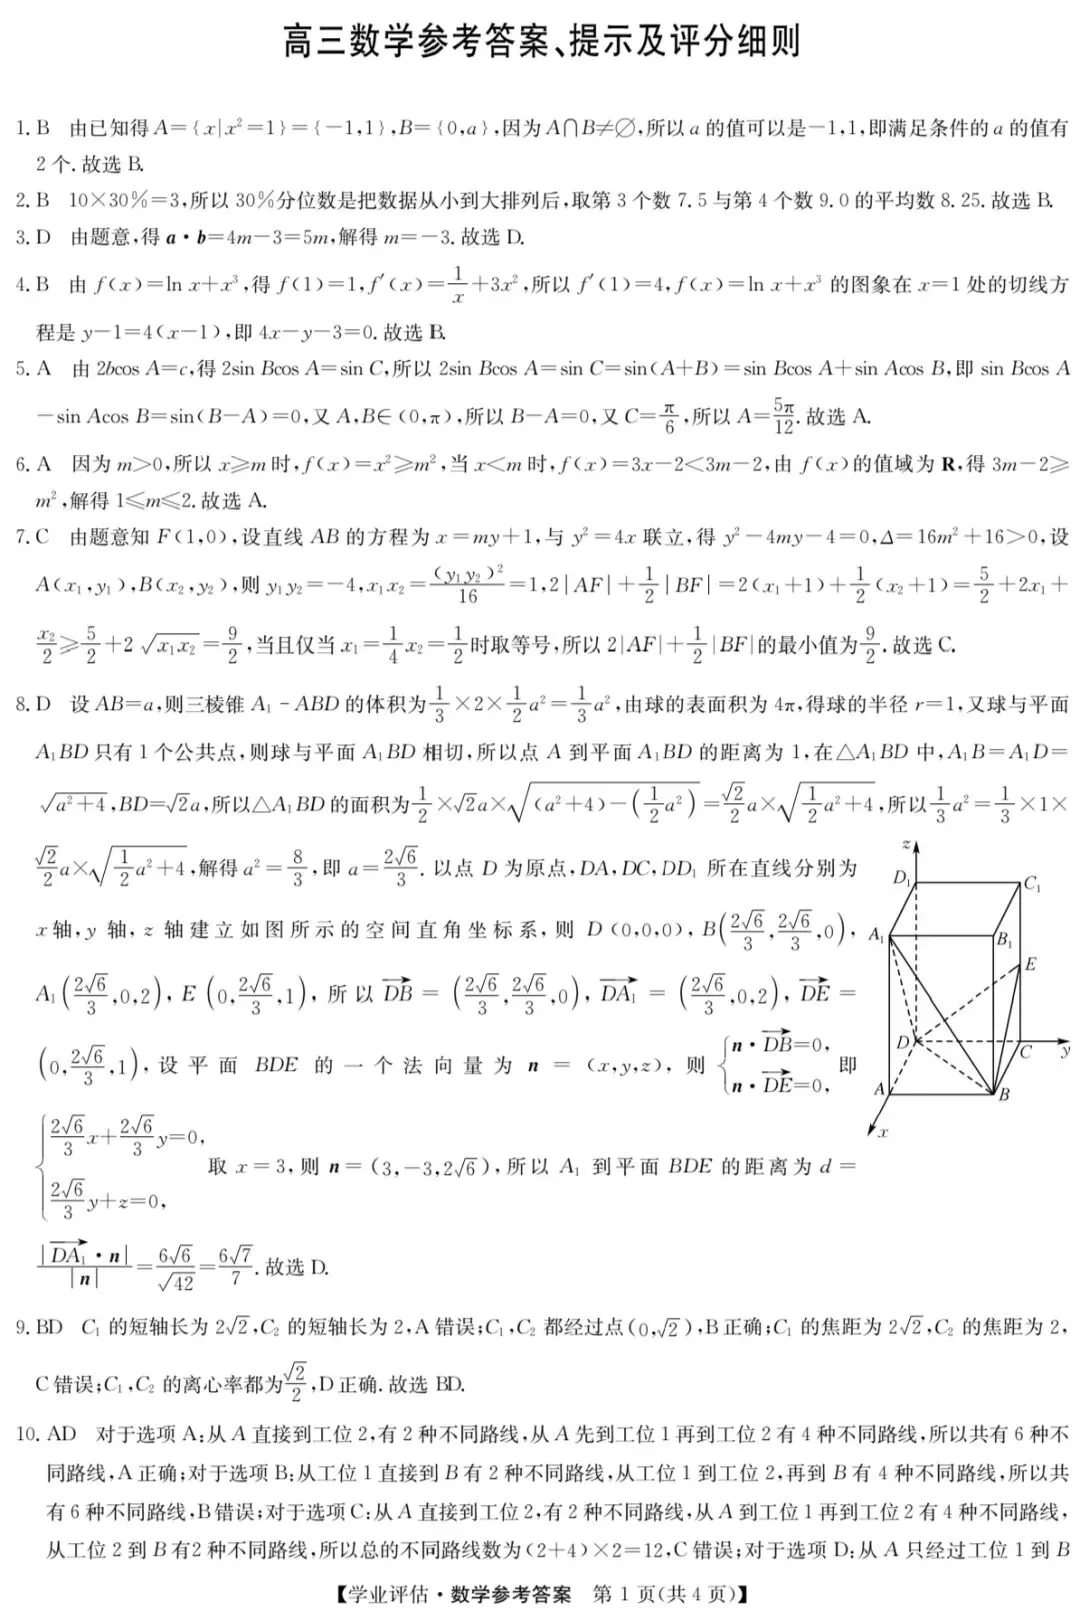 高三数学参考答案、提示及评分细则
1. B 由已知得 A={x|x²=1}={-1,1},B={0,a},因为 A∩B≠∅,所以 a 的值可以是-1,1,即满足条件的 a 的值有
2 个. 故选 B.
2. B 10×30%=3,所以 30%分位数是把数据从小到大排列后,取第 3 个数 7.5 与第 4 个数 9.0 的平均数 8.25. 故选 B.
3. D 由题意,得 a·b=4m-3=5m,解得 m=-3. 故选 D.
4. B 由 f(x)=ln x+x³,得 f(1)=1,f′(x)=1/x+3x²,所以 f′(1)=4,f(x)=ln x+x³ 的图象在 x=1 处的切线方
程是 y-1=4(x-1),即 4x-y-3=0. 故选 B.
5. A 由 2bcos A=c,得 2sin Bcos A=sin C,所以 2sin Bcos A=sin C=sin(A+B)=sin Bcos A+sin Acos B,即 sin Bcos A
-sin Acos B=sin(B-A)=0,又 A,B∈(0,π),所以 B-A=0,又 C=π/6,所以 A=5π/12. 故选 A.
6. A 因为 m>0,所以 x⩾m 时,f(x)=x²⩾m²,当 x<m 时,f(x)=3x-2<3m-2,由 f(x)的值域为 R,得 3m-2⩾
m²,解得 1⩽m⩽2. 故选 A.
7. C 由题意知 F(1,0),设直线 AB 的方程为 x=my+1,与 y²=4x 联立,得 y²-4my-4=0,Δ=16m²+16>0,设
A(x₁,y₁),B(x₂,y₂),则 y₁y₂=-4,x₁x₂=(y₁y₂)²/16=1,2|AF|+1/2|BF|=2(x₁+1)+1/2(x₂+1)=5/2+2x₁+
x₂/2⩾5/2+2√(x₁x₂)=9/2,当且仅当 x₁=1/4x₂=1/2时取等号,所以 2|AF|+1/2|BF|的最小值为9/2. 故选 C.
8. D 设 AB=a,则三棱锥 A₁-ABD 的体积为1/3×2×1/2a²=1/3a²,由球的表面积为 4π,得球的半径 r=1,又球与平面
A₁BD 只有 1 个公共点,则球与平面 A₁BD 相切,所以点 A 到平面 A₁BD 的距离为 1,在△A₁BD 中,A₁B=A₁D=
√(a²+4),BD=√2a,所以△A₁BD 的面积为1/2×√2a×√((a²+4)-(1/2a²))=√2/2a×√(1/2a²+4),所以1/3a²=1/3×1×
√2/2a×√(1/2a²+4),解得 a²=8/3,即 a=2√6/3. 以点 D 为原点,DA,DC,DD₁ 所在直线分别为
x 轴,y 轴,z 轴建立如图所示的空间直角坐标系,则 D(0,0,0),B(2√6/3,2√6/3,0),
A₁(2√6/3,0,2),E(0,2√6/3,1),所以 DB→=(2√6/3,2√6/3,0),DA₁→=(2√6/3,0,2),DE→=
(0,2√6/3,1),设平面 BDE 的一个法向量为 n=(x,y,z),则 {n·DB→=0, n·DE→=0, 即
{2√6/3x+2√6/3y=0, 2√6/3y+z=0, 取 x=3,则 n=(3,-3,2√6),所以 A₁ 到平面 BDE 的距离为 d=
|DA₁→·n|/|n|=6√6/√42=6√7/7. 故选 D.
z
D₁
C₁
A₁
B₁
E
D
C
y
A
B
x
9. BD C₁ 的短轴长为 2√2,C₂ 的短轴长为 2,A 错误;C₁,C₂ 都经过点(0,√2),B 正确;C₁ 的焦距为 2√2,C₂ 的焦距为 2,
C 错误;C₁,C₂ 的离心率都为√2/2,D 正确. 故选 BD.
10. AD 对于选项 A:从 A 直接到工位 2,有 2 种不同路线,从 A 先到工位 1 再到工位 2 有 4 种不同路线,所以共有 6 种不
同路线,A 正确;对于选项 B:从工位 1 直接到 B 有 2 种不同路线,从工位 1 到工位 2,再到 B 有 4 种不同路线,所以共
有 6 种不同路线,B 错误;对于选项 C:从 A 直接到工位 2,有 2 种不同路线,从 A 到工位 1 再到工位 2 有 4 种不同路线,
从工位 2 到 B 有2 种不同路线,所以总的不同路线数为(2+4)×2=12,C 错误;对于选项 D:从 A 只经过工位 1 到 B
【学业评估·数学参考答案 第 1 页(共 4 页)】